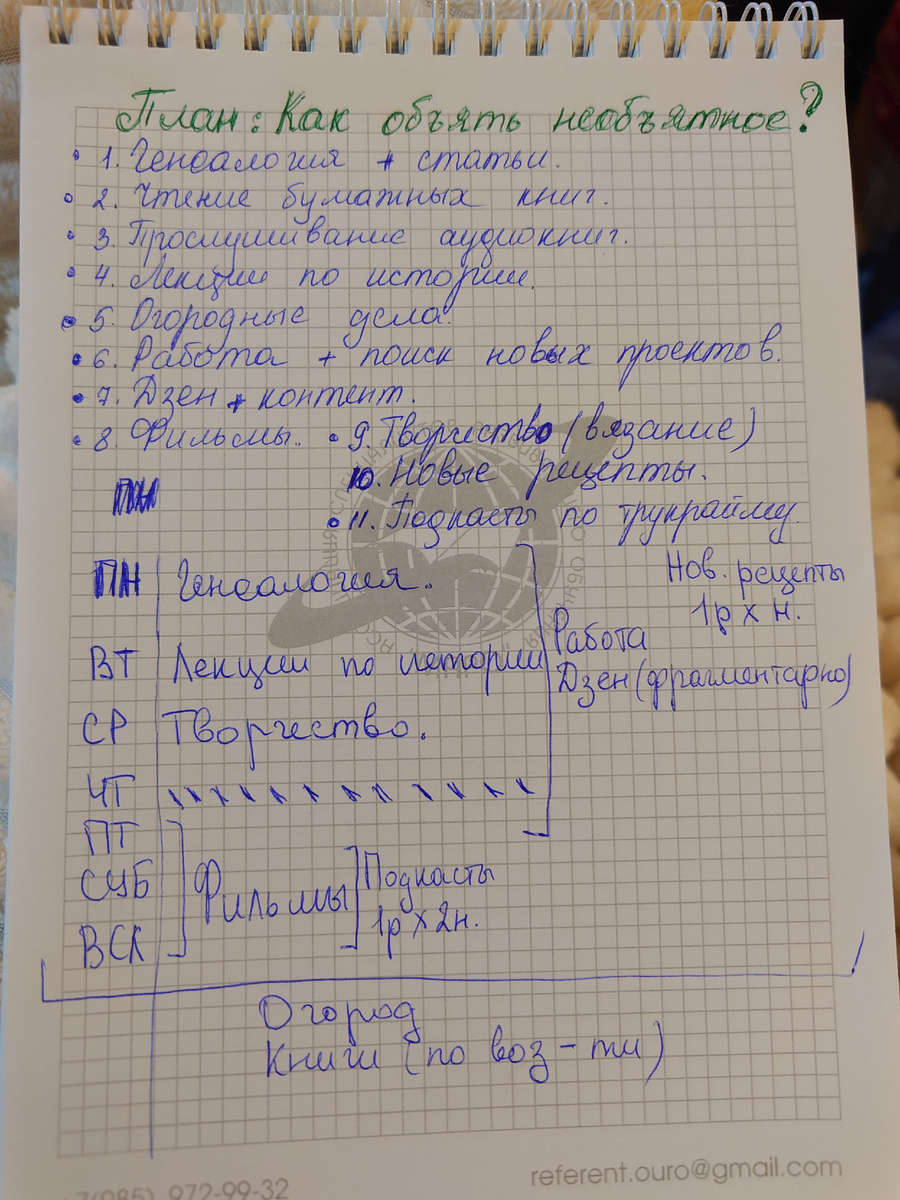 План: Как объять необъятное?
1. Генеалогия + статьи.
2. Чтение бумажных книг.
3. Прослушивание аудиокниг.
4. Лекции по истории.
5. Огородные дела.
6. Работа + поиск новых проектов.
7. Дзен + контент.
8. Фильмы. 9. Творчество (вязание)
10. Новые рецепты.
11. Подкасты по трукрайму.
ПН Генеалогия.
Нов. рецепты
1р х н.
ВТ Лекции по истории
Работа
Дзен (фрагментарно)
СР Творчество.
ЧТ
ПТ
СУБ
ВСК
Фильмы
Подкасты
1р х 2н.
Огород
Книги (по воз-ти)
referent.ouro@gmail.com
+7(985) 972-99-32